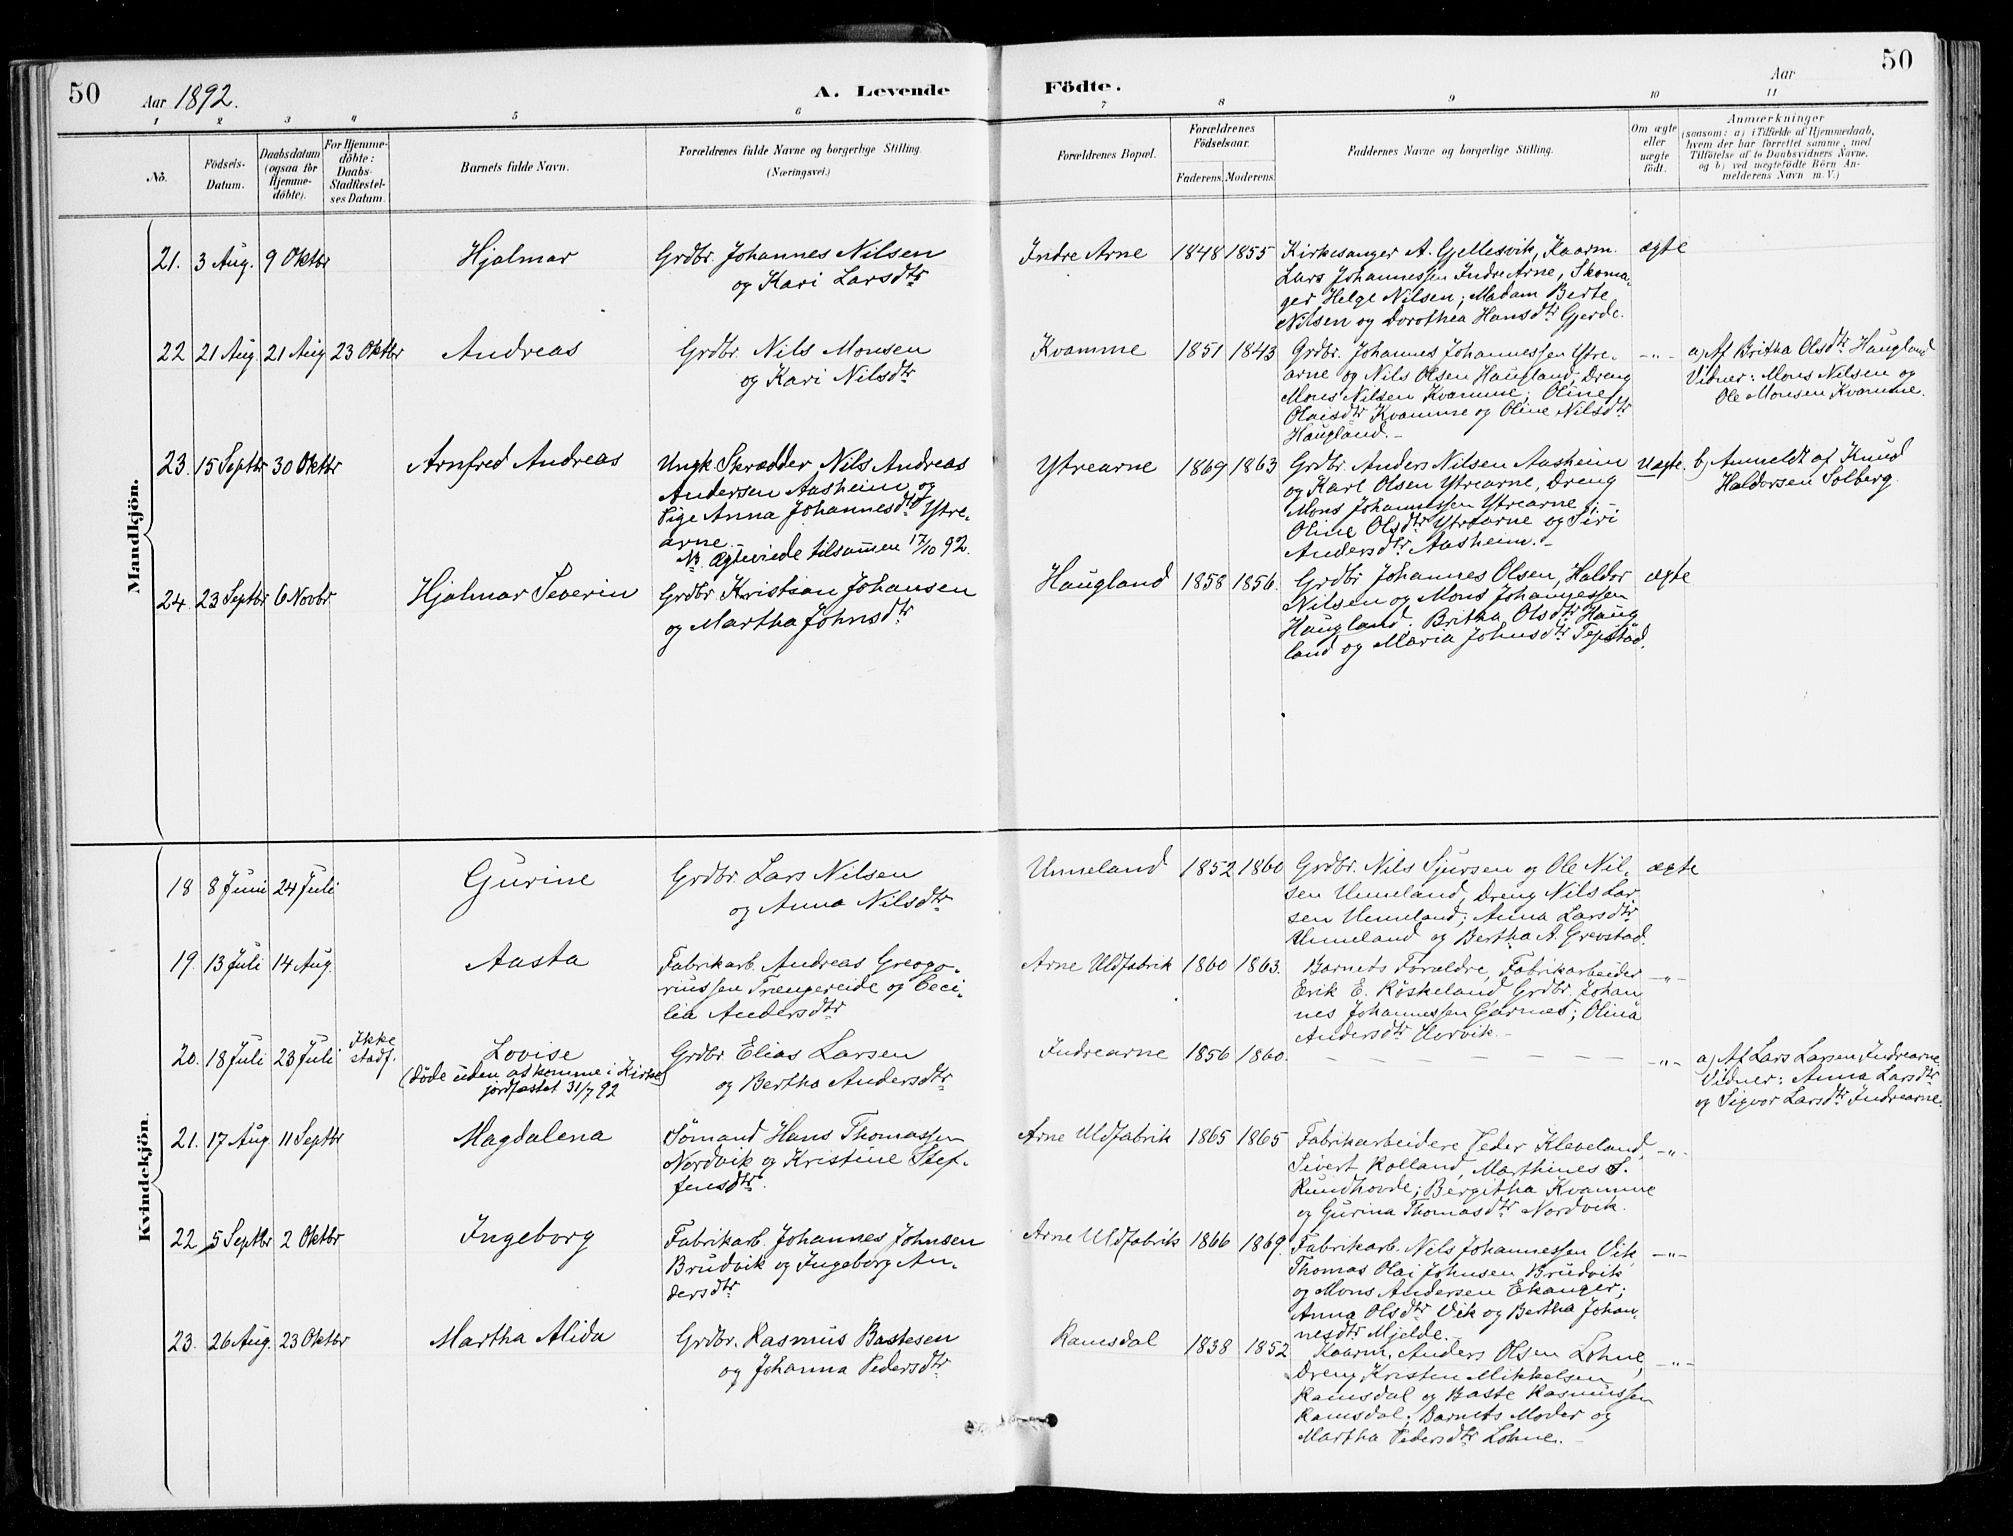 50
Aar 1892.
A. Levende
Födte.
Aar
50
1 2 3 4 5 6 7 8 9 10 11
No.
Födsels-
Datum.
Daabsdatum
(ogsaa for
Hjemme-
döbte).
For Hjemme-
döbte:
Daabs-
Stadfestel-
ses Datum.
Barnets fulde Navn.
Forældrenes fulde Navne og borgerlige Stilling.
(Næringsvei.)
Forældrenes Bopæl.
Forældrenes
Födselsaar.
Faderens. Moderens.
Faddernes Navne og borgerlige Stilling.
Om ægte
eller
uægte
födt.
Anmærkninger
(saasom: a) i Tilfælde af Hjemmedaab,
hvem der har forrettet samme, med
Tilföielse af to Daabsvidners Navne,
og b) ved uægtefödte Börn An-
melderens Navn m. V.)
Mandkjön.
21. 3 Aug. 9 Oktbr
Hjalmar
Grdbr. Johannes Nilsen
og Kari Larsdtr
Indre Arne
1848 1855
Kirkesanger A. Gjellesvik, Kaarm.
Lars Johannessen Indre Arne, Skoma-
ger Helge Nilsen; Madam Berte
Nilsen og Dorothea Hansdtr Gjerde.
ægte
22 21 Aug. 21 Aug 23 Oktbr
Andreas
Grdbr. Nils Monsen
og Kari Nilsdtr
Kvamme
1851 1843
Grdbr. Johannes Johannessen Ytre-
arne og Nils Olsen Haugland, Dreng
Mons Nilsen Kvamme; Oline
Olaisdtr Kvamme og Oline Nilsdtr
Haugland.-
-"-
a) Af Britha Olsdtr Haugland
Vidner: Mons Nilsen og
Ole Monsen Kvamme.
23. 15 Septbr 30 Oktbr
Arnfred Andreas
Ungk. Skrædder Nils Andreas
Andersen Aasheim og
Pige Anna Johannesdtr Ytre-
arne.
NB. Ægteviede tilsammen 17/10 92.
Ytrearne
1869 1863
Grdbr. Anders Nilsen Aasheim
og Karl Olsen Ytrearne, Dreng
Mons Johannessen Ytrearne;-
Oline Olsdtr Ytrearne og Siri
Andersdtr Aasheim.-
Uægte.
b) Anmeldt af Knud
Haldorsen Solberg.
24. 23 Septbr 6 Novbr
Hjalmar Severin
Grdbr. Kristian Johansen
og Martha Johnsdtr
Haugland
1858 1856.
Grdbr Johannes Olsen, Haldor
Nilsen og Mons Johannessen
Haugland; Britha Olsdtr Haug
land og Maria Johnsdtr Tepstad.
ægte
Kvindekjön.
18 8 Juni 24 Juli
Gurine
Grdbr. Lars Nilsen
og Anna Nilsdtr
Unneland
1852 1860
Grdbr. Nils Sjursen og Ole Nil-
sen Unneland, Dreng Nils Lar-
sen Unneland; Anna Larsdtr
Unneland og Bertha A. Grevstad.
ægte
19. 13 Juli 14 Aug.
Aasta
Fabrikarb. Andreas Grego-
riussen Trængereide og Ceci-
lia Andersdtr
Arne Uldfabrik
1860 1863.
Barnets Forældre, Fabrikarbeider
Erik E. Röskeland, Grdbr. Johan
nes Johannessen Garnæs; Olina
Andersdtr Hervik.-
-"-
20. 18 Juli 23 Juli
Ikke
stadf.
Lovise
(döde uden at komme i Kirke)
jordfæstet 31/7 92
Grdbr. Elias Larsen
og Bertha Andersdtr
Indrearne
1856 1860.
- - - - - - - -
-"-
a) Af Lars Larsen, Indrearne
Vidner: Anna Larsdtr
og Sigvor Larsdtr Indrearne.
21. 17 Aug. 11 Septbr
Magdalena
Sömand Hans Thomassen
Nordvik og Kristine Stef-
fensdtr.
Arne Uldfabrik
1865 1865
Fabrikarbeidere Peder Kleveland,
Sivert Rolland, Marthines S.
Rundhovde; Bergitha Kvamme
og Gurina Thomasdtr Nordvik.
-"-
22 5 Septbr 2 Oktbr
Ingeborg
Fabrikarb. Johannes Johnsen
Brudvik og Ingeborg An-
dersdtr
Arne Uldfabrik
1866 1869.
Fabrikarb. Nils Johannessen Vik,
Thomas Olai Johnsen Brudvik
og Mons Andersen Ekanger;
Anna Olsdtr Vik og Bertha Johan-
nesdtr Mjelde.-
-"-
23. 26 Aug. 23 Oktbr
Martha Alida
Grdbr. Rasmus Bastesen
og Johanna Pedersdtr
Ramsdal
1838 1852
Kaarm. Anders Olsen Lohne,
Dreng Kristen Mikkelsen
Ramsdal og Baste Rasmussen
Ramsdal; Barnets Moder og
Martha Pedersdtr Lohne.-
-"-